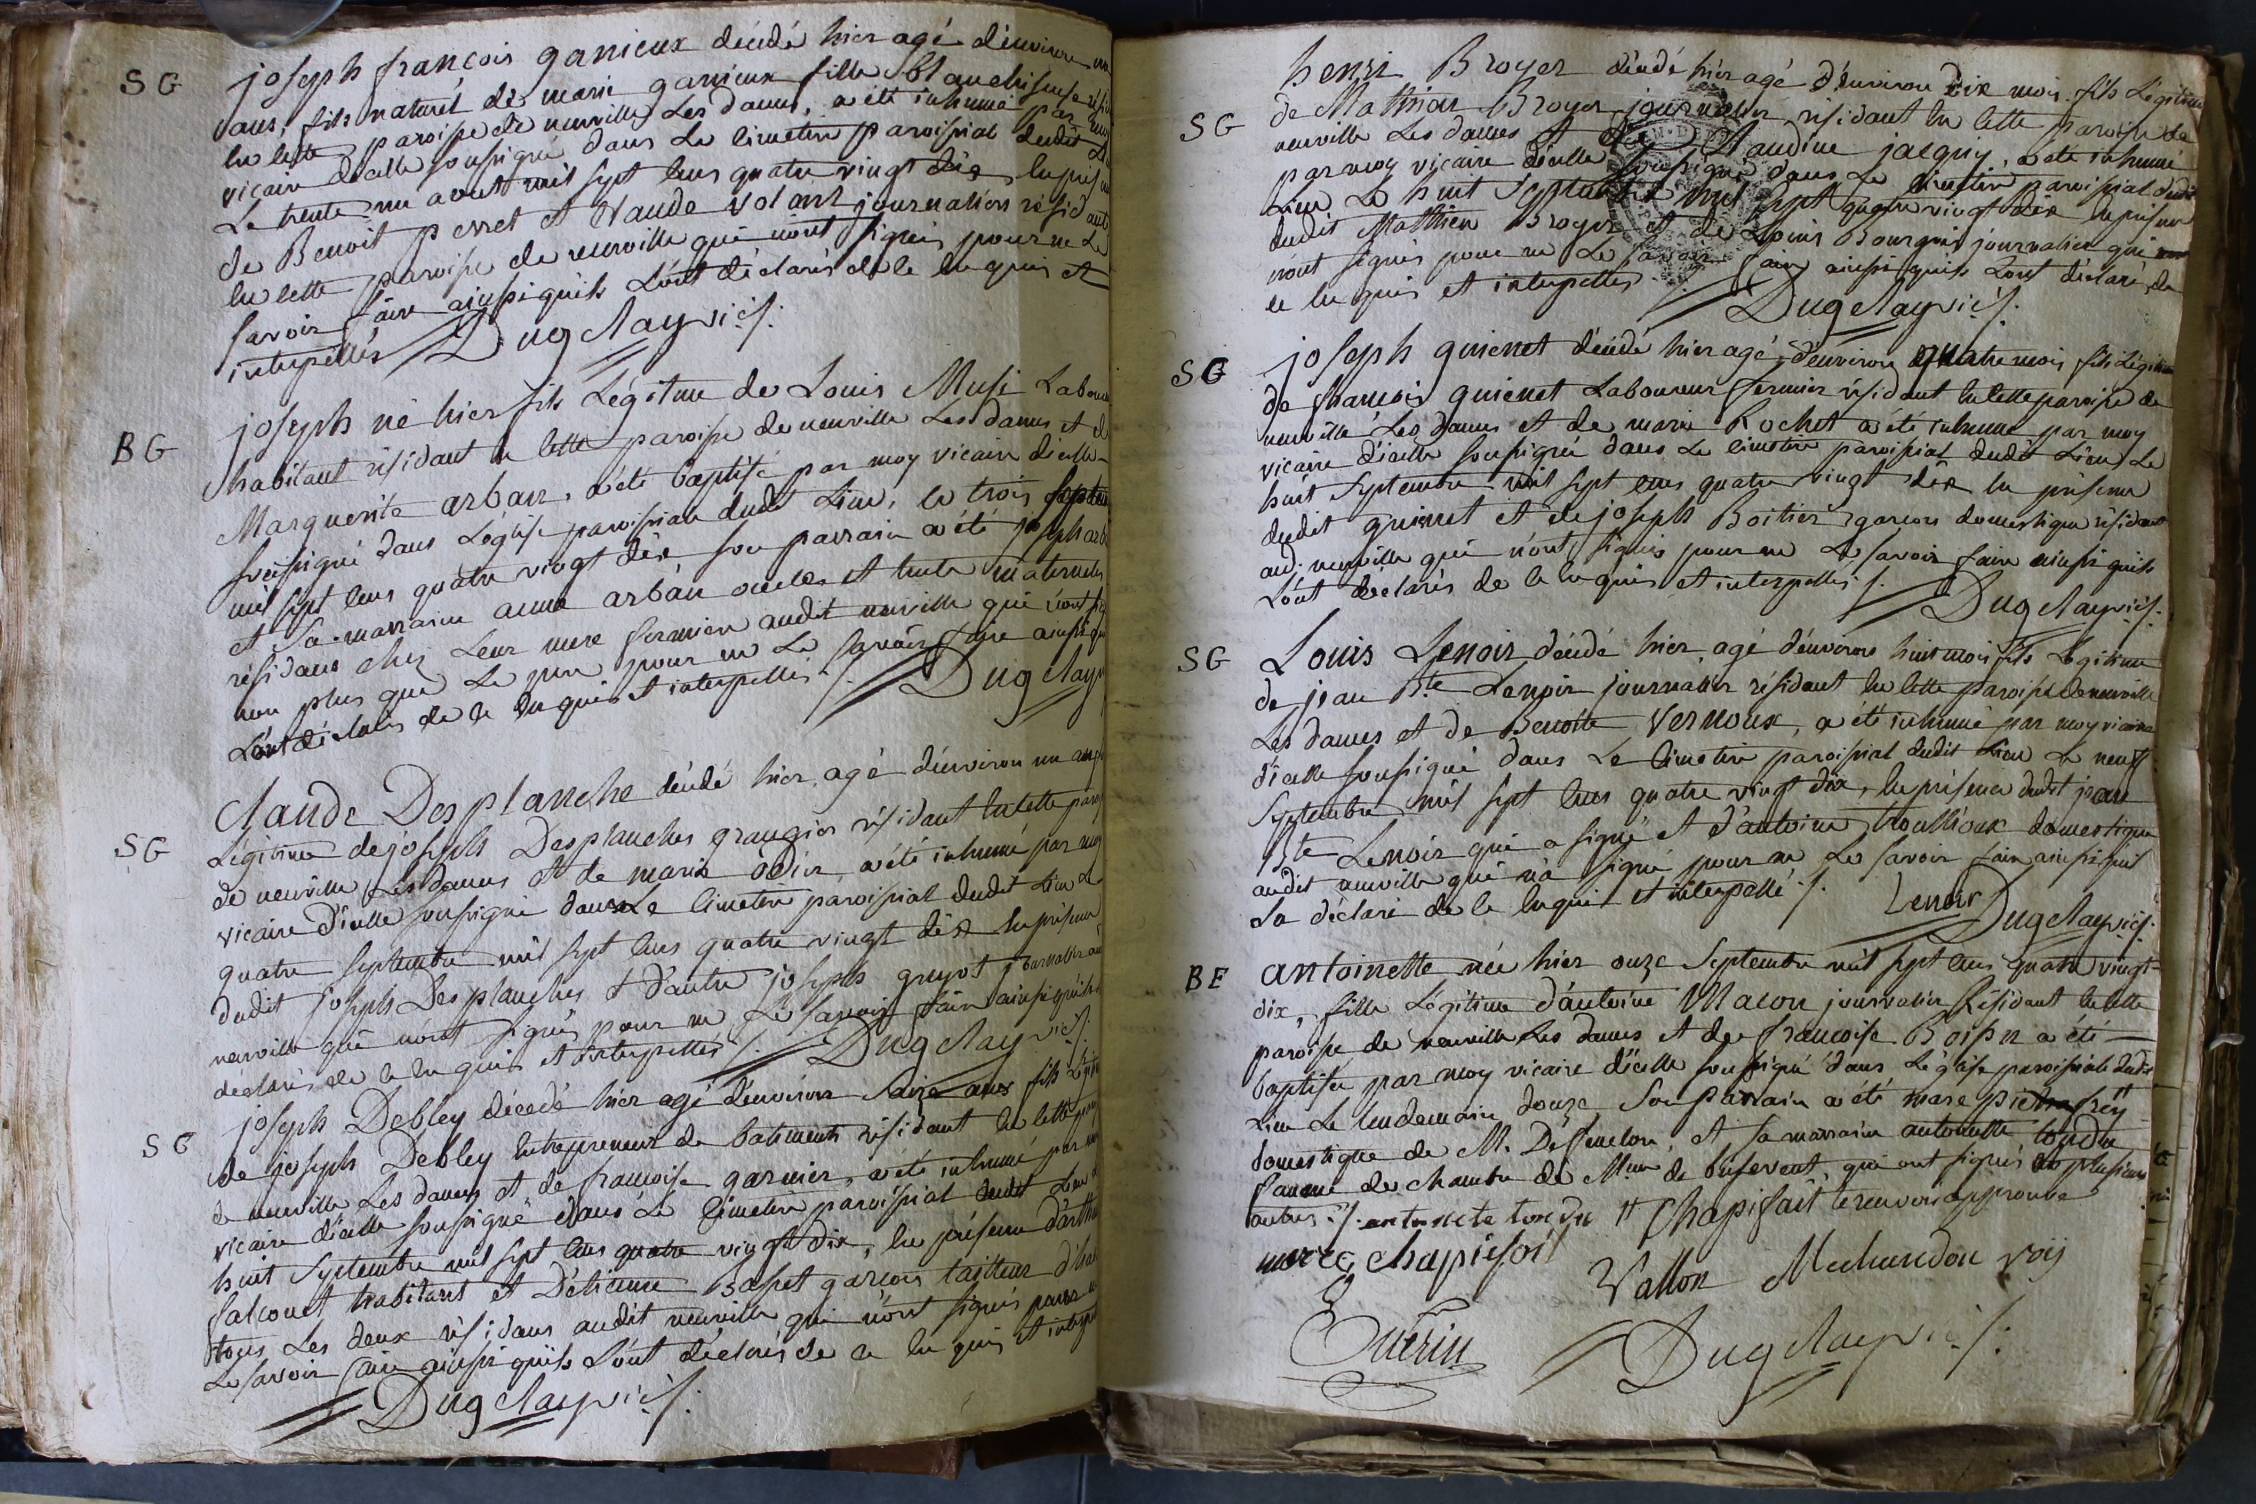 SG
joseph françois ganieux décédé hier agé d'environ
ans, fils naturel de marie ganieux fille blanchiseuse
en cette paroisse de neuville Les dames, a été inhumé par moy
vicaire d'icelle soussigné dans Le cimetiere paroissial dudit
Le trente un aout mil sept cens quatre vingt dix
de Benoit perret et Claude volant journaliers résidant
en cette paroisse de neuville qui n'ont signés pour ne Le
savoir faire ainsi quils L'ont déclarés de ce enquis et
interpellés Dugclay vic.
BG
joseph né hier fils Légitime de Louis Musi
habitant résidant en cette paroisse de neuville Les dames et
Marguerite arban, a été baptisé par moy vicaire d'icelle
soussigné dans L'église paroissiale dudit Lieu, le trois
mil sept cens quatre vingt dix son parrain a été joseph
et Sa marraine anne arban oncle et tante maternels
résidans chez Leur mere fermiere audit neuville qui n'ont
non plus que Le pere pour ne Le savoir faire ainsi
L'ont déclarés de ce enquis et interpellés ./. Dugclay
SG
Claude Desplanche décédé hier agé d'environ un
Légitime de joseph Desplanches granger résidant en cette
de neuville Les dames et de marie odin, a été inhumé par moy
vicaire d'icelle soussigné dans Le cimetiere paroissial dudit Lieu Le
quatre septembre mil sept cens quatre vingt dix en présence
dudit joseph Desplanches et d'autre joseph guyot journalier
neuville qui n'ont signés pour ne Le savoir faire ainsi quils
déclarés de ce enquis et interpellés ./. Dugclay vic.
SG
joseph Debley décédé hier agé d'environ seize ans fils
de joseph Debley entrepreneur de batiments résidant en cette
de neuville Les dames et de françoise garnier, a été inhumé par
vicaire d'icelle soussigné dans Le cimetiere paroissial dudit Lieu
huit septembre mil sept cens quatre vingt dix, en présence
falconet habitant et D'étienne Baset garçon tailleur
tous Les deux résidans audit neuville qui n'ont signés pour
Le savoir faire ainsi quils L'ont déclarés de ce enquis et
Dugclay vic.
SG
henri Broyer décédé hier agé d'environ dix mois fils Légitime
de Mathieu Broyer journalier résidant en cette paroisse de
neuville Les dames et de Claudine jacquy, a été inhumé
par moy vicaire d'icelle soussigné dans Le cimetiere paroissial dudit
Lieu Le huit septembre mil sept quatre vingt dix en présence
dudit Mathieu Broyer et de Louis Bourguis journalier qui
n'ont signés pour ne Le savoir faire ainsi quils L'ont déclaré de
ce enquis et interpellés ./. Dugclay vic.
SG
joseph guienet décédé hier agé d'environ quatre mois fils Légitime
de françois guienet Laboureur fermier résidant en cette paroisse de
neuville Les Dames et de marie Rochet a été inhumé par moy
vicaire d'icelle soussigné dans Le cimetiere paroissial dudit Lieu Le
huit septembre mil sept cens quatre vingt dix en présence
dudit guienet et de joseph Boitier garçon domestique résidant
aud. neuville qui n'ont signés pour ne Le savoir faire ainsi quils
L'ont declarés de ce enquis et interpellés ./. Dugclay vic.
SG
Louis Lenoir décédé hier agé d'environ huit mois fils Légitime
de jean Bte Lenoir journalier résidant en cette paroisse de neuville
Les dames et de Benoite Vernoux, a été inhumé par moy vicaire
d'icelle soussigné dans Le cimetiere paroissial dudit Lieu Le neuf
septembre mil sept cens quatre vingt dix, en présence dudit jean
Bte Lenoir qui a signé et d'antoine troullioux domestique
audit neuville qui n'a signé pour ne Le savoir faire ainsi quil
L'a déclaré de ce enquis et interpellé ./. Lenoir Dugclay vic.
BF
antoinette née hier onze septembre mil sept cens quatre vingt
dix, fille Légitime d'antoine Macon journalier Résidant en cette
paroisse de neuville Les dames et de françoise Boisn a été
baptisée par moy vicaire d'icelle soussigné dans L'église paroissiale dudit
Lieu Le lendemain douze, Son parrain a été marc
domestique de M. De et sa marraine antoinette tondu
femme de chambre de Mme de qui ont signés et plusieurs
autres ./. antoinete tondu # Chapisait le renvoi approuvé
marc chapisoit
Vallon Mechandon
Guérin Dugclay vic.